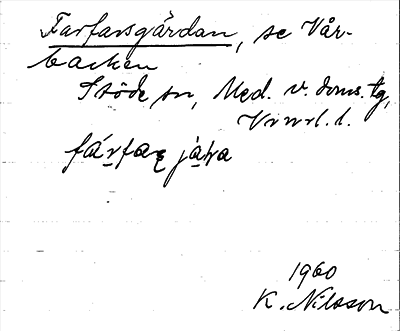 Farfarsgårdan, se Vår-
backen
Stöde sn, Med. v. doms. tg,
Vnrl. l.
fárfaʂ jàɽa
1960
K. Nilsson